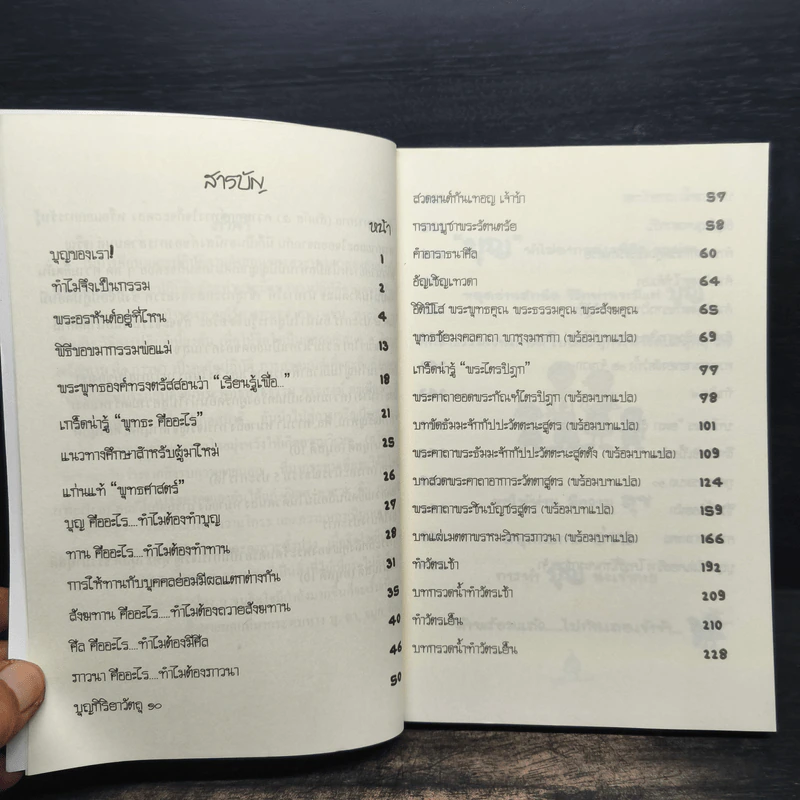 สารบัญ
หน้า
บุญของเรา! 1
ทำไมจึงเป็นกรรม 2
พระอรหันต์อยู่ที่ไหน 4
พิธีขอขมากรรมพ่อแม่ 13
พระพุทธองค์ทรงตรัสสอนว่า “เรียนรู้เพื่อ...” 18
เกร็ดน่ารู้ “พุทธะ คืออะไร” 21
แนวทางศึกษาสำหรับผู้มาใหม่ 25
แก่นแท้ “พุทธศาสตร์” 26
บุญ คืออะไร...ทำไมต้องทำบุญ 27
ทาน คืออะไร....ทำไมต้องทำทาน 28
การให้ทานกับบุคคลย่อมมีผลแตกต่างกัน 31
สังฆทาน คืออะไร.....ทำไมต้องถวายสังฆทาน 35
ศีล คืออะไร....ทำไมต้องมีศีล 40
ภาวนา คืออะไร....ทำไมต้องภาวนา 46
บุญกิริยาวัตถุ ๑๐ 50
สวดมนต์กันเทอญ เจ้าข้า 57
กราบบูชาพระรัตนตรัย 58
คำอาราธนาศีล 60
อัญเชิญเทวดา 64
อิติปิโส พระพุทธคุณ พระธรรมคุณ พระสังฆคุณ 65
พุทธชัยมงคลคาถา พาหุงมหากา (พร้อมบทแปล) 69
เกร็ดน่ารู้ “พระไตรปิฎก” 77
พระคาถายอดพระกัณฑ์ไตรปิฎก (พร้อมบทแปล) 78
บทขัดธัมมะจักกัปปะวัตตะนะสูตร (พร้อมบทแปล) 101
พระคาถาพระธัมมะจักกัปปะวัตตะนะสุตตัง (พร้อมบทแปล) 109
บทสวดพระคาถาอาการะวัตตาสูตร (พร้อมบทแปล) 124
พระคาถาพระชินบัญชรสูตร (พร้อมบทแปล) 159
บทแผ่เมตตาพรหมะวิหารภาวนา (พร้อมบทแปล) 166
ทำวัตรเช้า 192
บทกรวดน้ำทำวัตรเช้า 209
ทำวัตรเย็น 210
บทกรวดน้ำทำวัตรเย็น 228